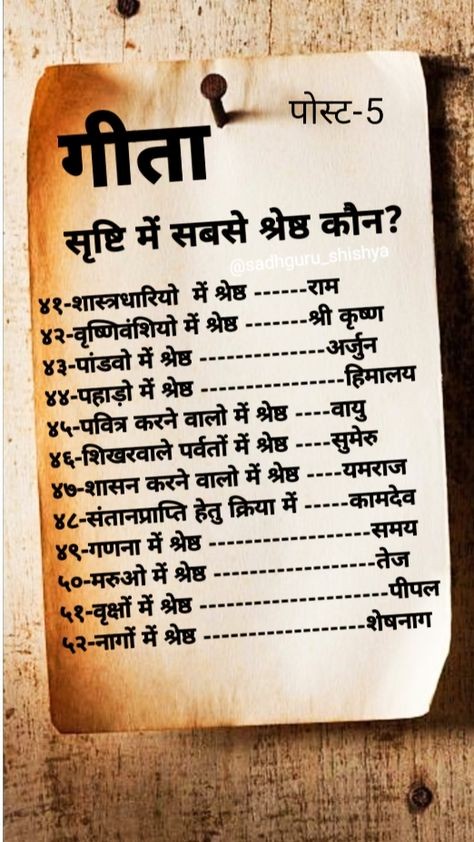 पोस्ट-5
गीता
सृष्टि में सबसे श्रेष्ठ कौन?
@sadhguru_shishya
४१-शास्त्रधारियो में श्रेष्ठ ------राम
४२-वृष्णिवंशियो में श्रेष्ठ -------श्री कृष्ण
४३-पांडवो में श्रेष्ठ --------------अर्जुन
४४-पहाड़ो में श्रेष्ठ ----------------हिमालय
४५-पवित्र करने वालो में श्रेष्ठ ----वायु
४६-शिखरवाले पर्वतों में श्रेष्ठ ----सुमेरु
४७-शासन करने वालो में श्रेष्ठ ----यमराज
४८-संतानप्राप्ति हेतु क्रिया में -----कामदेव
४९-गणना में श्रेष्ठ ------------------समय
५०-मरुओ में श्रेष्ठ ------------------तेज
५१-वृक्षों में श्रेष्ठ ---------------------पीपल
५२-नागों में श्रेष्ठ ------------------शेषनाग